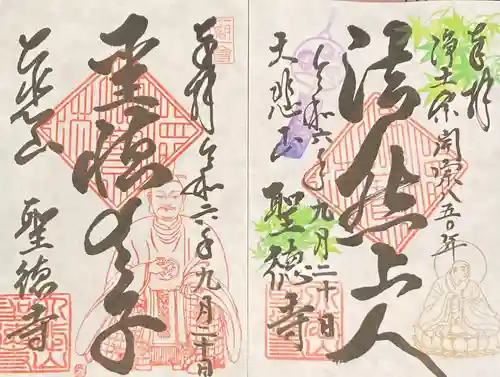 奉拝
浄土宗開宗八五〇年
法然上人
令和六年九月二十日
大悲山
聖徳寺
奉拝
令和六年九月二十日
聖徳太子
聖徳寺